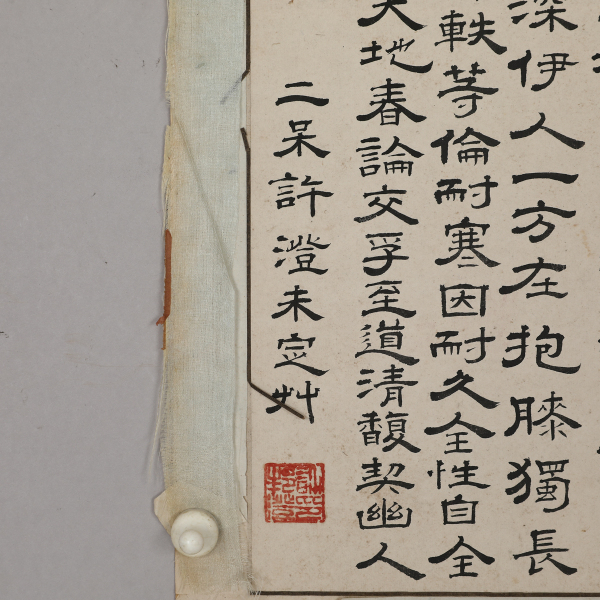 深伊人一方在抱膝獨長
軼等倫耐寒因耐久全性自全
天地春論交孚至道清馥契幽人
二呆許澄未定艸